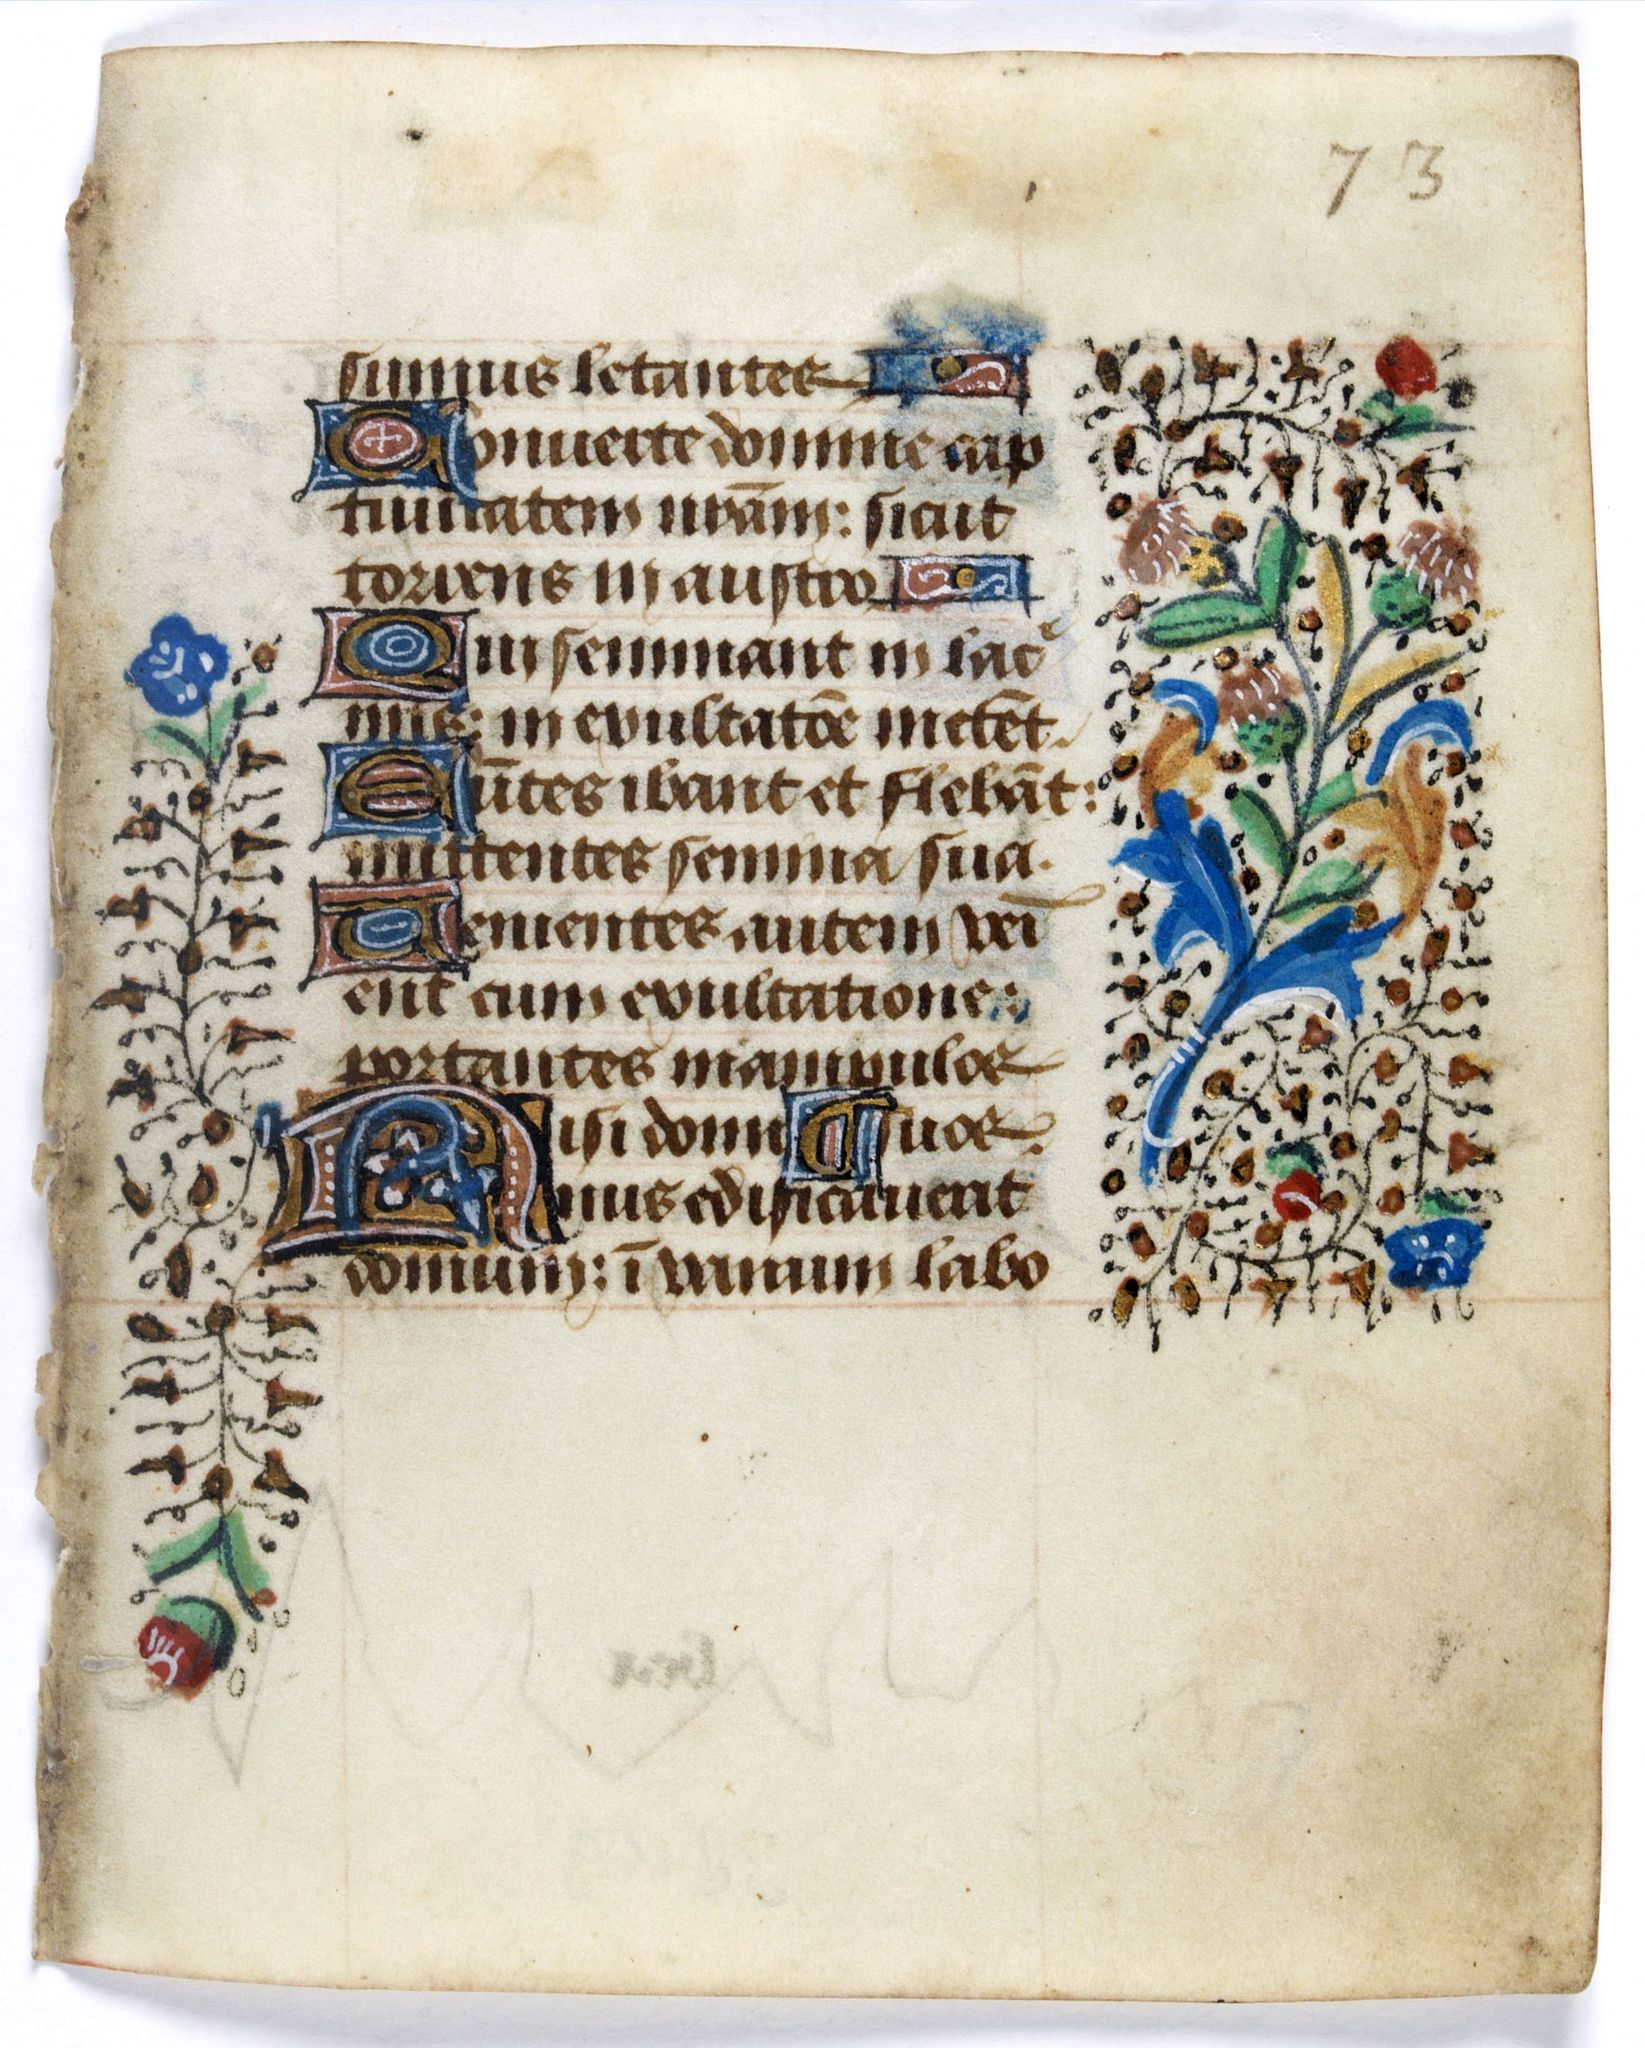 73
sumus letantes
Conuerte domine cap
tiuitatem nr̄am: sicut
torrens in austro
Qui seminant in lac
mis: in exultatōe metēt.
Eūtes ibant et flebāt:
mittentes semina sua.
Uenientes autem vei
ent cum exultatione:
portantes manipulos
Nisi domi suos.
nus edificauerit
domum: ī vanum labo